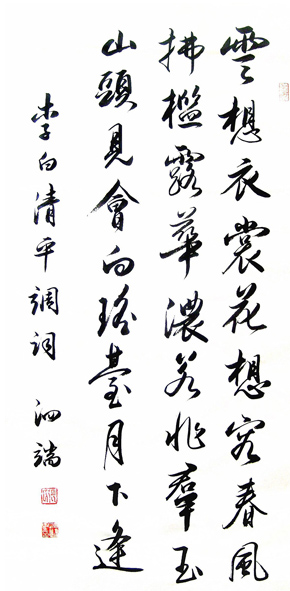 雲想衣裳花想容春風
拂檻露華濃若非羣玉
山頭見會向瑤臺月下逢
李白清平調詞 泗端